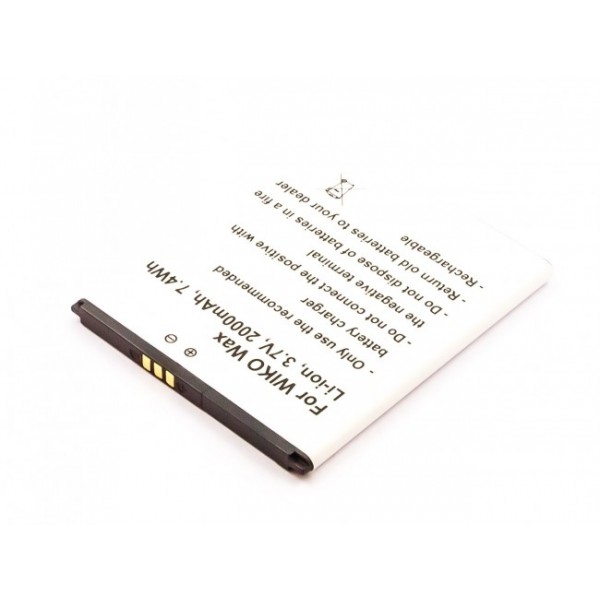 For WIKO Wax
Li-Ion, 3.7V, 2000mAh, 7.4Wh
- Only use the recommended
battery charger
- Do not connect the positive with
the negative terminal
- Do not dispose of batteries in a fire
- Return old batteries to your dealer
- Rechargeable